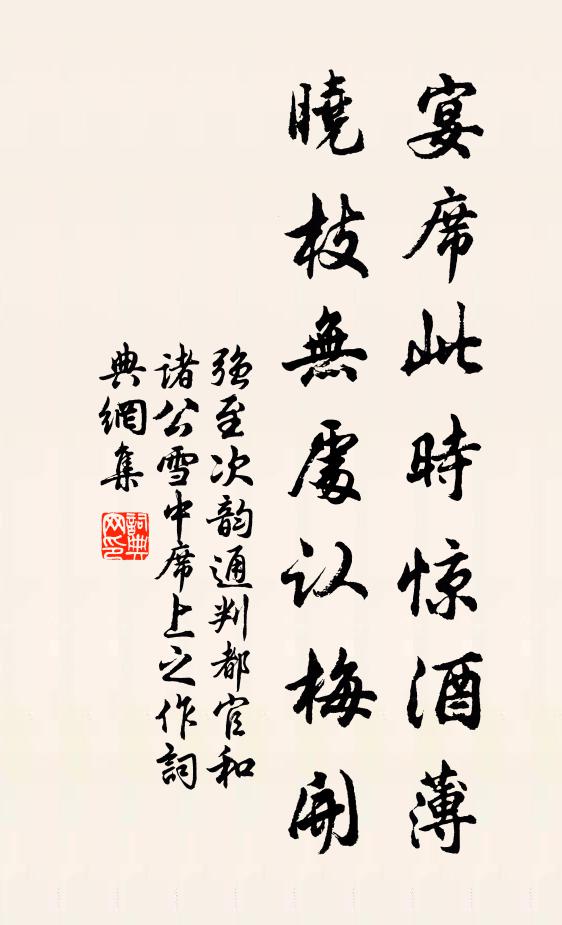 宴席此時惊酒薄
曉枝無處认梅開
强至次韵通判都官和
诸公雪中席上之作詞
典網集
詞典網印